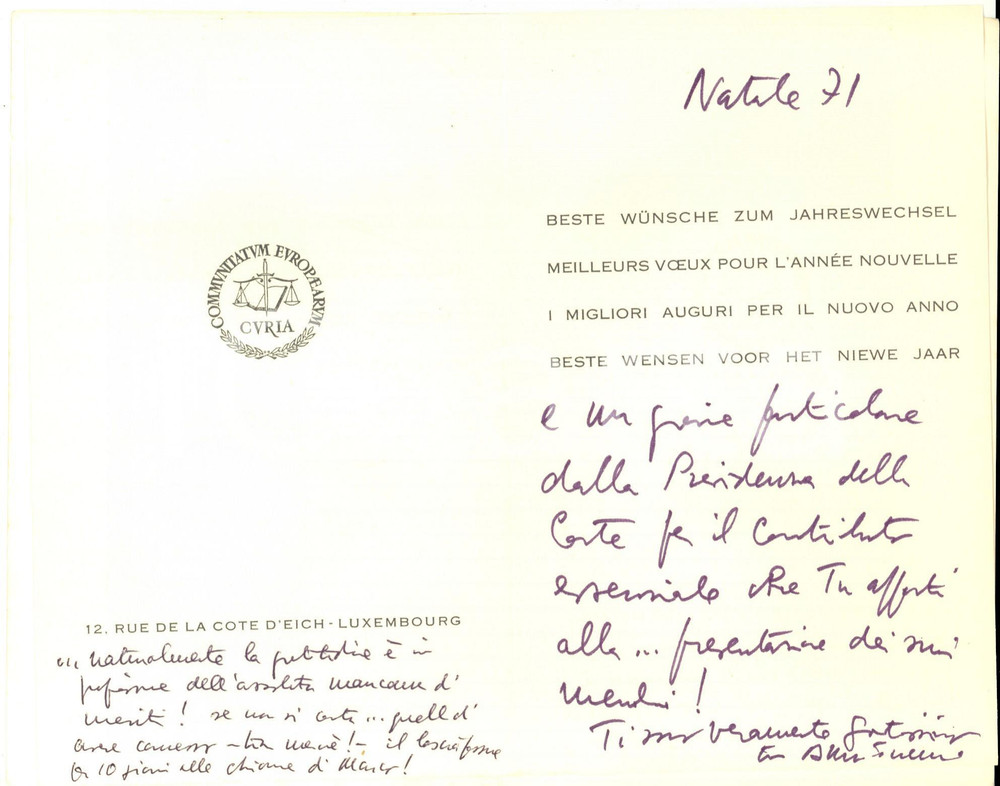 COMMVNITATVM EVROPÆARVM
CVRIA
12. RUE DE LA COTE D'EICH - LUXEMBOURG
... naturalmente la pubblicazione è in
dell'assoluta mancanza di
meriti! se non si conta ... quello d'
avere - - il
per 10 giorni alle di !
Natale 71
BESTE WÜNSCHE ZUM JAHRESWECHSEL
MEILLEURS VŒUX POUR L'ANNÉE NOUVELLE
I MIGLIORI AUGURI PER IL NUOVO ANNO
BESTE WENSEN VOOR HET NIEWE JAAR
e un grazie particolare
dalla Presidenza della
Corte per il contributo
essenziale che Tu apporti
alla ... presentazione dei suoi
membri!
Ti sono veramente